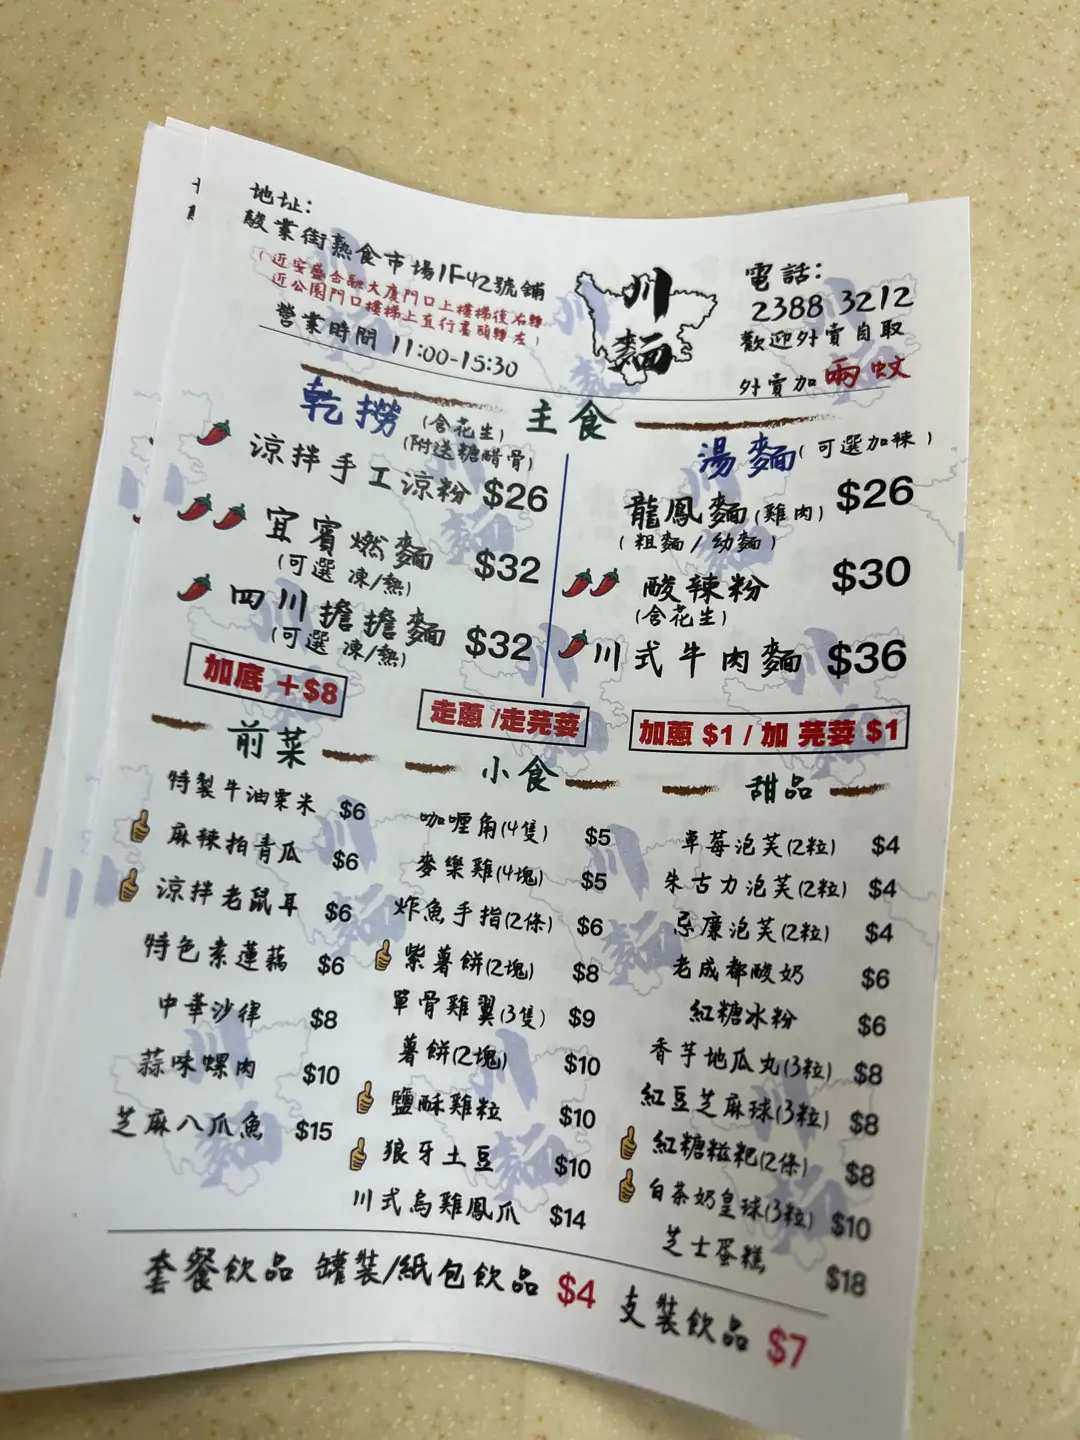 地址：
駿業街熟食市場1F42號鋪
(近安盛金融大廈門口上樓梯後右轉
近公園門口樓梯上直行盡頭轉左)
營業時間 11:00-15:30
川
麵
電話：
2388 3212
歡迎外賣自取
外賣加兩蚊
主食
乾撈 (含花生)
(附送糖醋骨)
涼拌手工涼粉 $26
宜賓燃麵 $32
(可選 凍/熱)
四川擔擔麵 $32
(可選 凍/熱)
湯麵 (可選加辣)
龍鳳麵 (雞肉) $26
(粗麵/幼麵)
酸辣粉 $30
(含花生)
川式牛肉麵 $36
加底 +$8
走蔥 /走芫荽
加蔥 $1 / 加 芫荽 $1
前菜
特製牛油粟米 $6
麻辣拍青瓜 $6
涼拌老鼠耳 $6
特色素蓮藕 $6
中華沙律 $8
蒜味螺肉 $10
芝麻八爪魚 $15
小食
咖喱角(4隻) $5
麥樂雞(4塊) $5
炸魚手指(2條) $6
紫薯餅(2塊) $8
單骨雞翼(3隻) $9
薯餅(2塊) $10
鹽酥雞粒 $10
狼牙土豆 $10
川式烏雞鳳爪 $14
甜品
草莓泡芙(2粒) $4
朱古力泡芙(2粒) $4
忌廉泡芙(2粒) $4
老成都酸奶 $6
紅糖冰粉 $6
香芋地瓜丸(3粒) $8
紅豆芝麻球(3粒) $8
紅糖糍粑(2條) $8
白茶奶皇球(3粒) $10
芝士蛋糕 $18
套餐飲品 罐裝/紙包飲品 $4 支裝飲品 $7